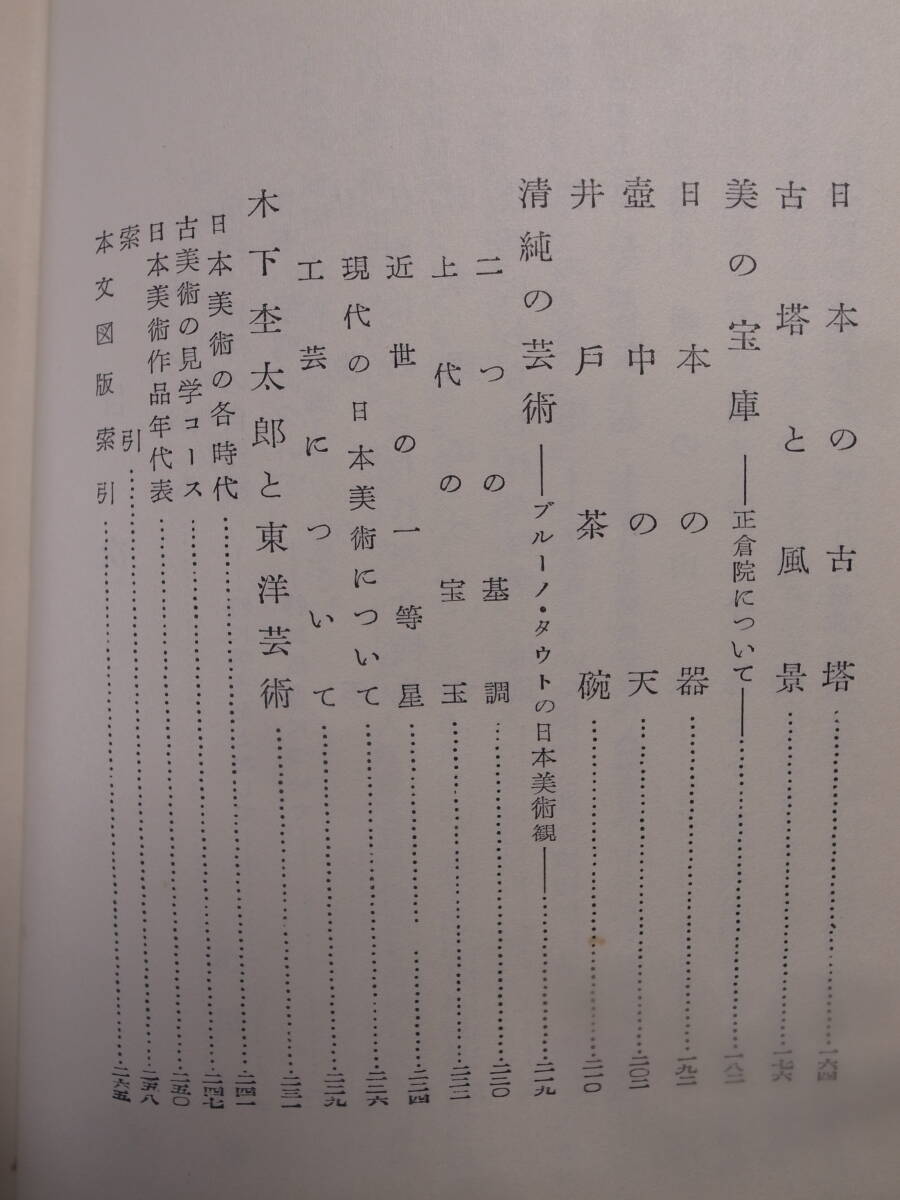 日本の古塔……一六四
古塔と風景……一七六
美の宝庫――正倉院について――……一八二
日本の器……一九二
壺中の天……二〇二
井戸茶碗……二一〇
清純の芸術――ブルーノ・タウトの日本美術観――……二一九
二つの基調……二二〇
上代の宝玉……二二二
近世の一等星……二二四
現代の日本美術について……二二六
工芸について……二二九
木下杢太郎と東洋芸術……二三一
日本美術の各時代……二四一
古美術の見学コース……二四七
日本美術作品年代表……二五〇
索引……二五八
本文図版索引……二六五